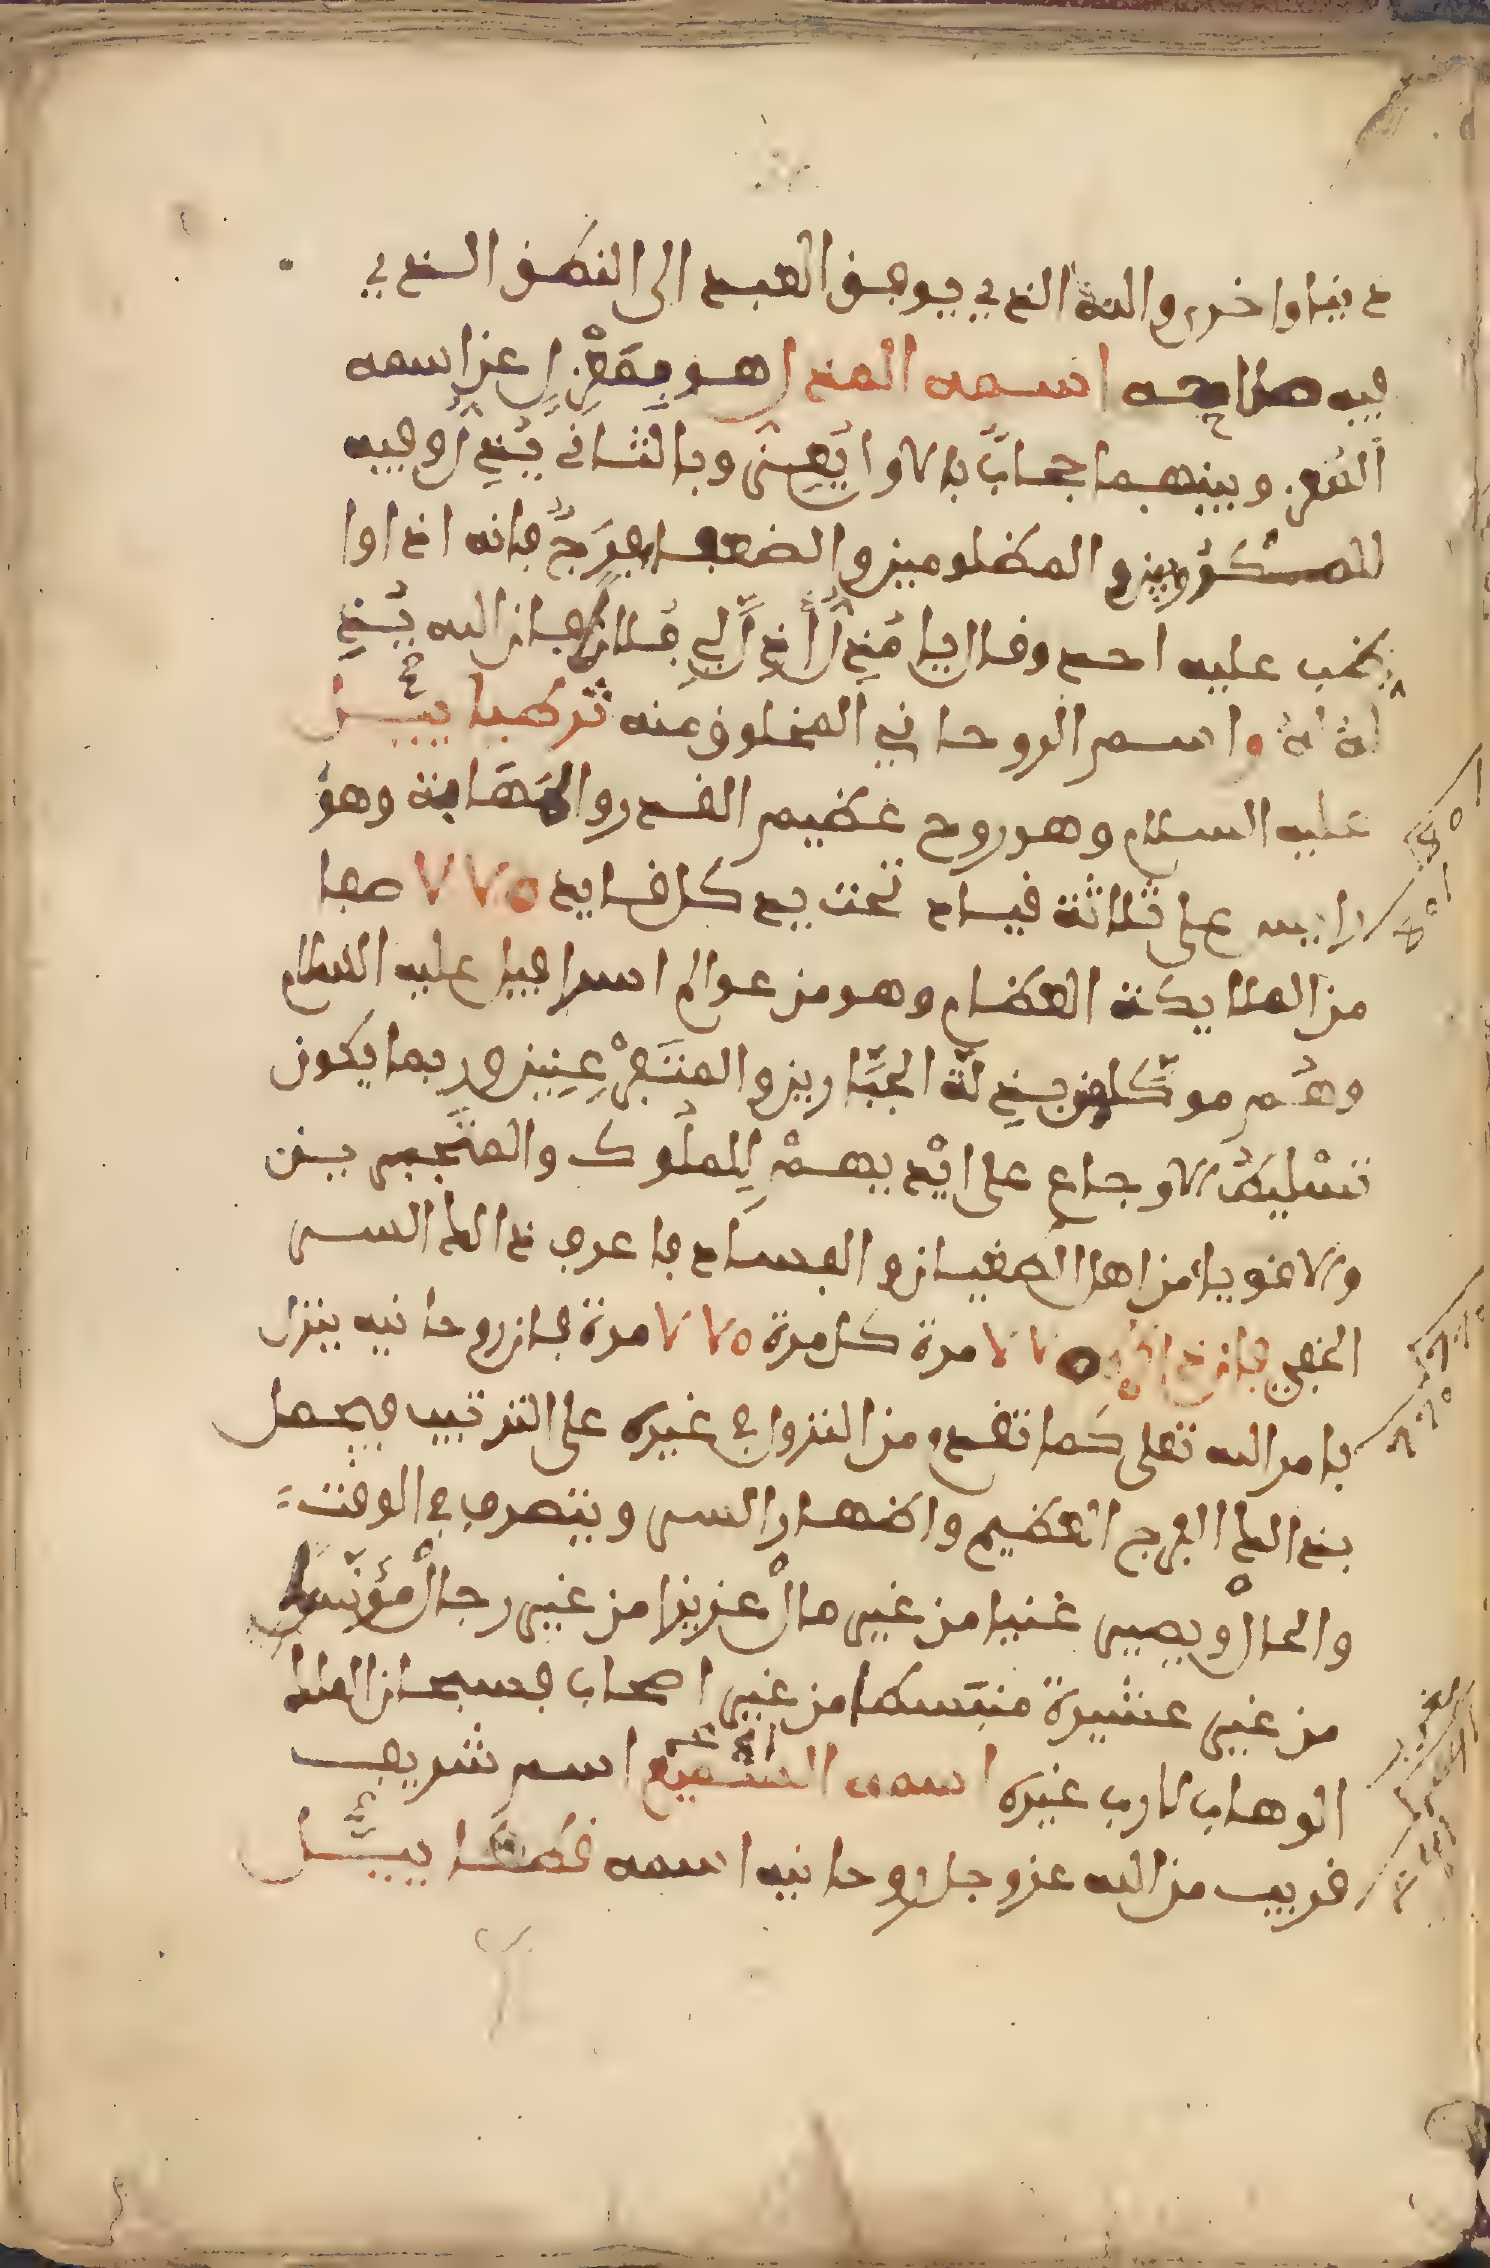 دنيا واخرى والله الذي يوفق العبد الى النطق الذي
فيه صلاحه اسمه المذل هو بمعنى عز اسمه
المعز وبينهما حجاب بالاول يعني وبالثاني يذل وفيه
للمكروبين والمظلومين والضعفاء فرج فانه اذا وا
ظب عليه احد وقال يا مذل اذل لي فلان فان الله يذ
له له واسم الروحاني المخلوق عنه تركهيا ييل
عليه السلام وهو روح عظيم القدر والمهابة وهو
راييس على ثلاثة قياد تحت يد كل قايد ٧٧٥ صفا
من الملايكة العظام وهو من عوالم اسرافيل عليه السلام
وهم موكلون بذلة الجبارين والمتفرعنين وربما يكون
تسليط الاوجاع على ايديهم للملوك والمتجبرين
والاغويا من اهل الطغيان والفساد فاعرف ذالك السر
الخفي فان ذاكره ٧٧٥ مرة كل مرة ٧٧٥ مرة فان روحانيه ينزل
بامر الله تعلى كما تقدم من النزول في غيره على الترتيب فيحصل
بذالك الفرج العظيم واظهار السر ويتصرف في الوقت
والحال ويصير غنيا من غير مال عزيزا من غير رجال مؤنسا
من غير عشيرة منبسطا من غير اصحاب فسبحان الملك
الوهاب لا رب غيره اسمه السميع اسم شريف
قريب من الله عز وجل روحانيه اسمه ييل